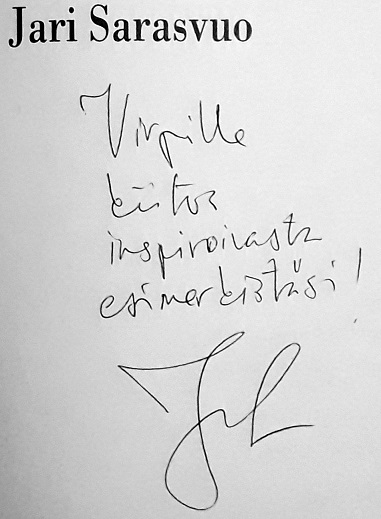 Jari Sarasvuo
Virpille
kiitos
inspiroivasta
esimerkistäsi!